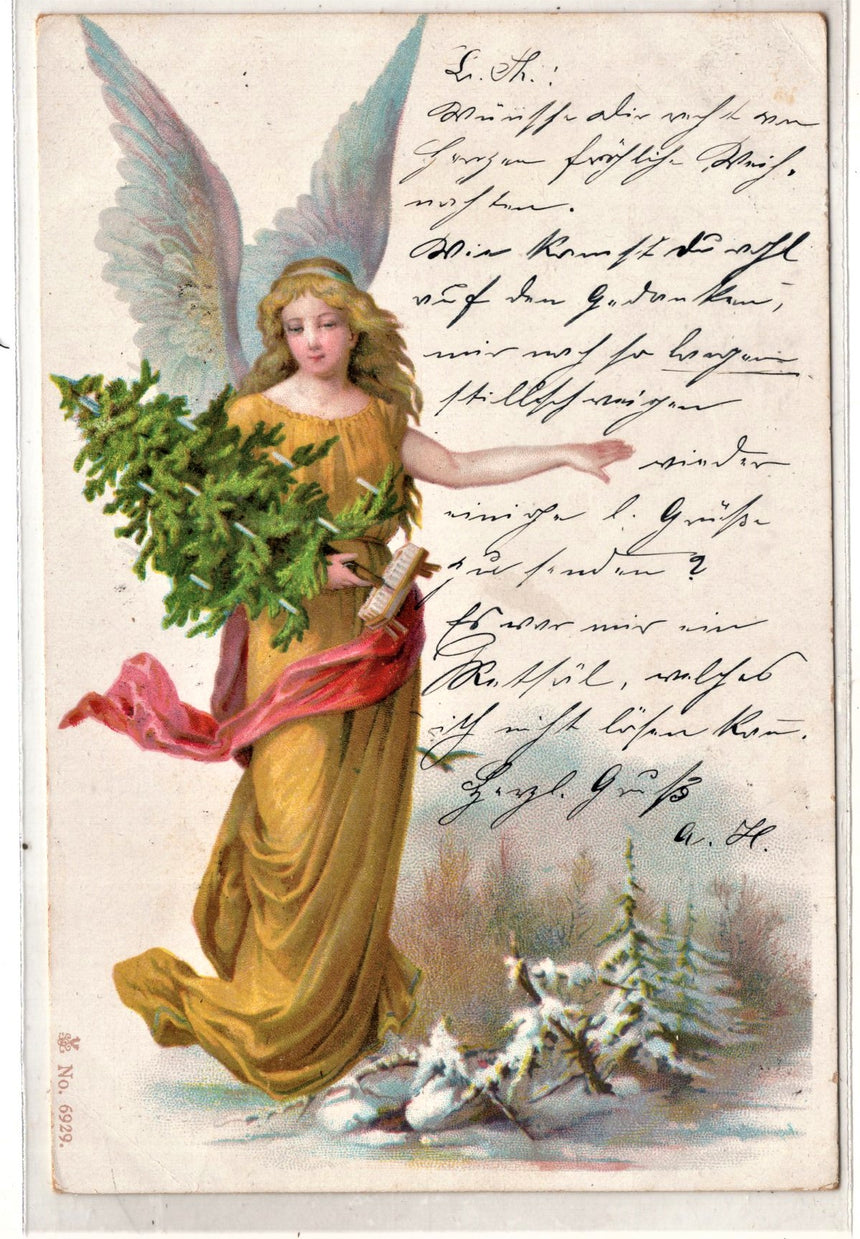 L. Th.!
Wünsche Dir recht von
Herzen fröhliche Weih-
nachten.
Wie kamst du wohl
auf den Gedanken,
mir nach so langem
stillschweigen
wieder
einige l. Grüße
zu senden?
Es war mir ein
Rethsäl, welches
ich nicht lösen kan̄.
Herzl. Gruß
A. H.
No. 6929.